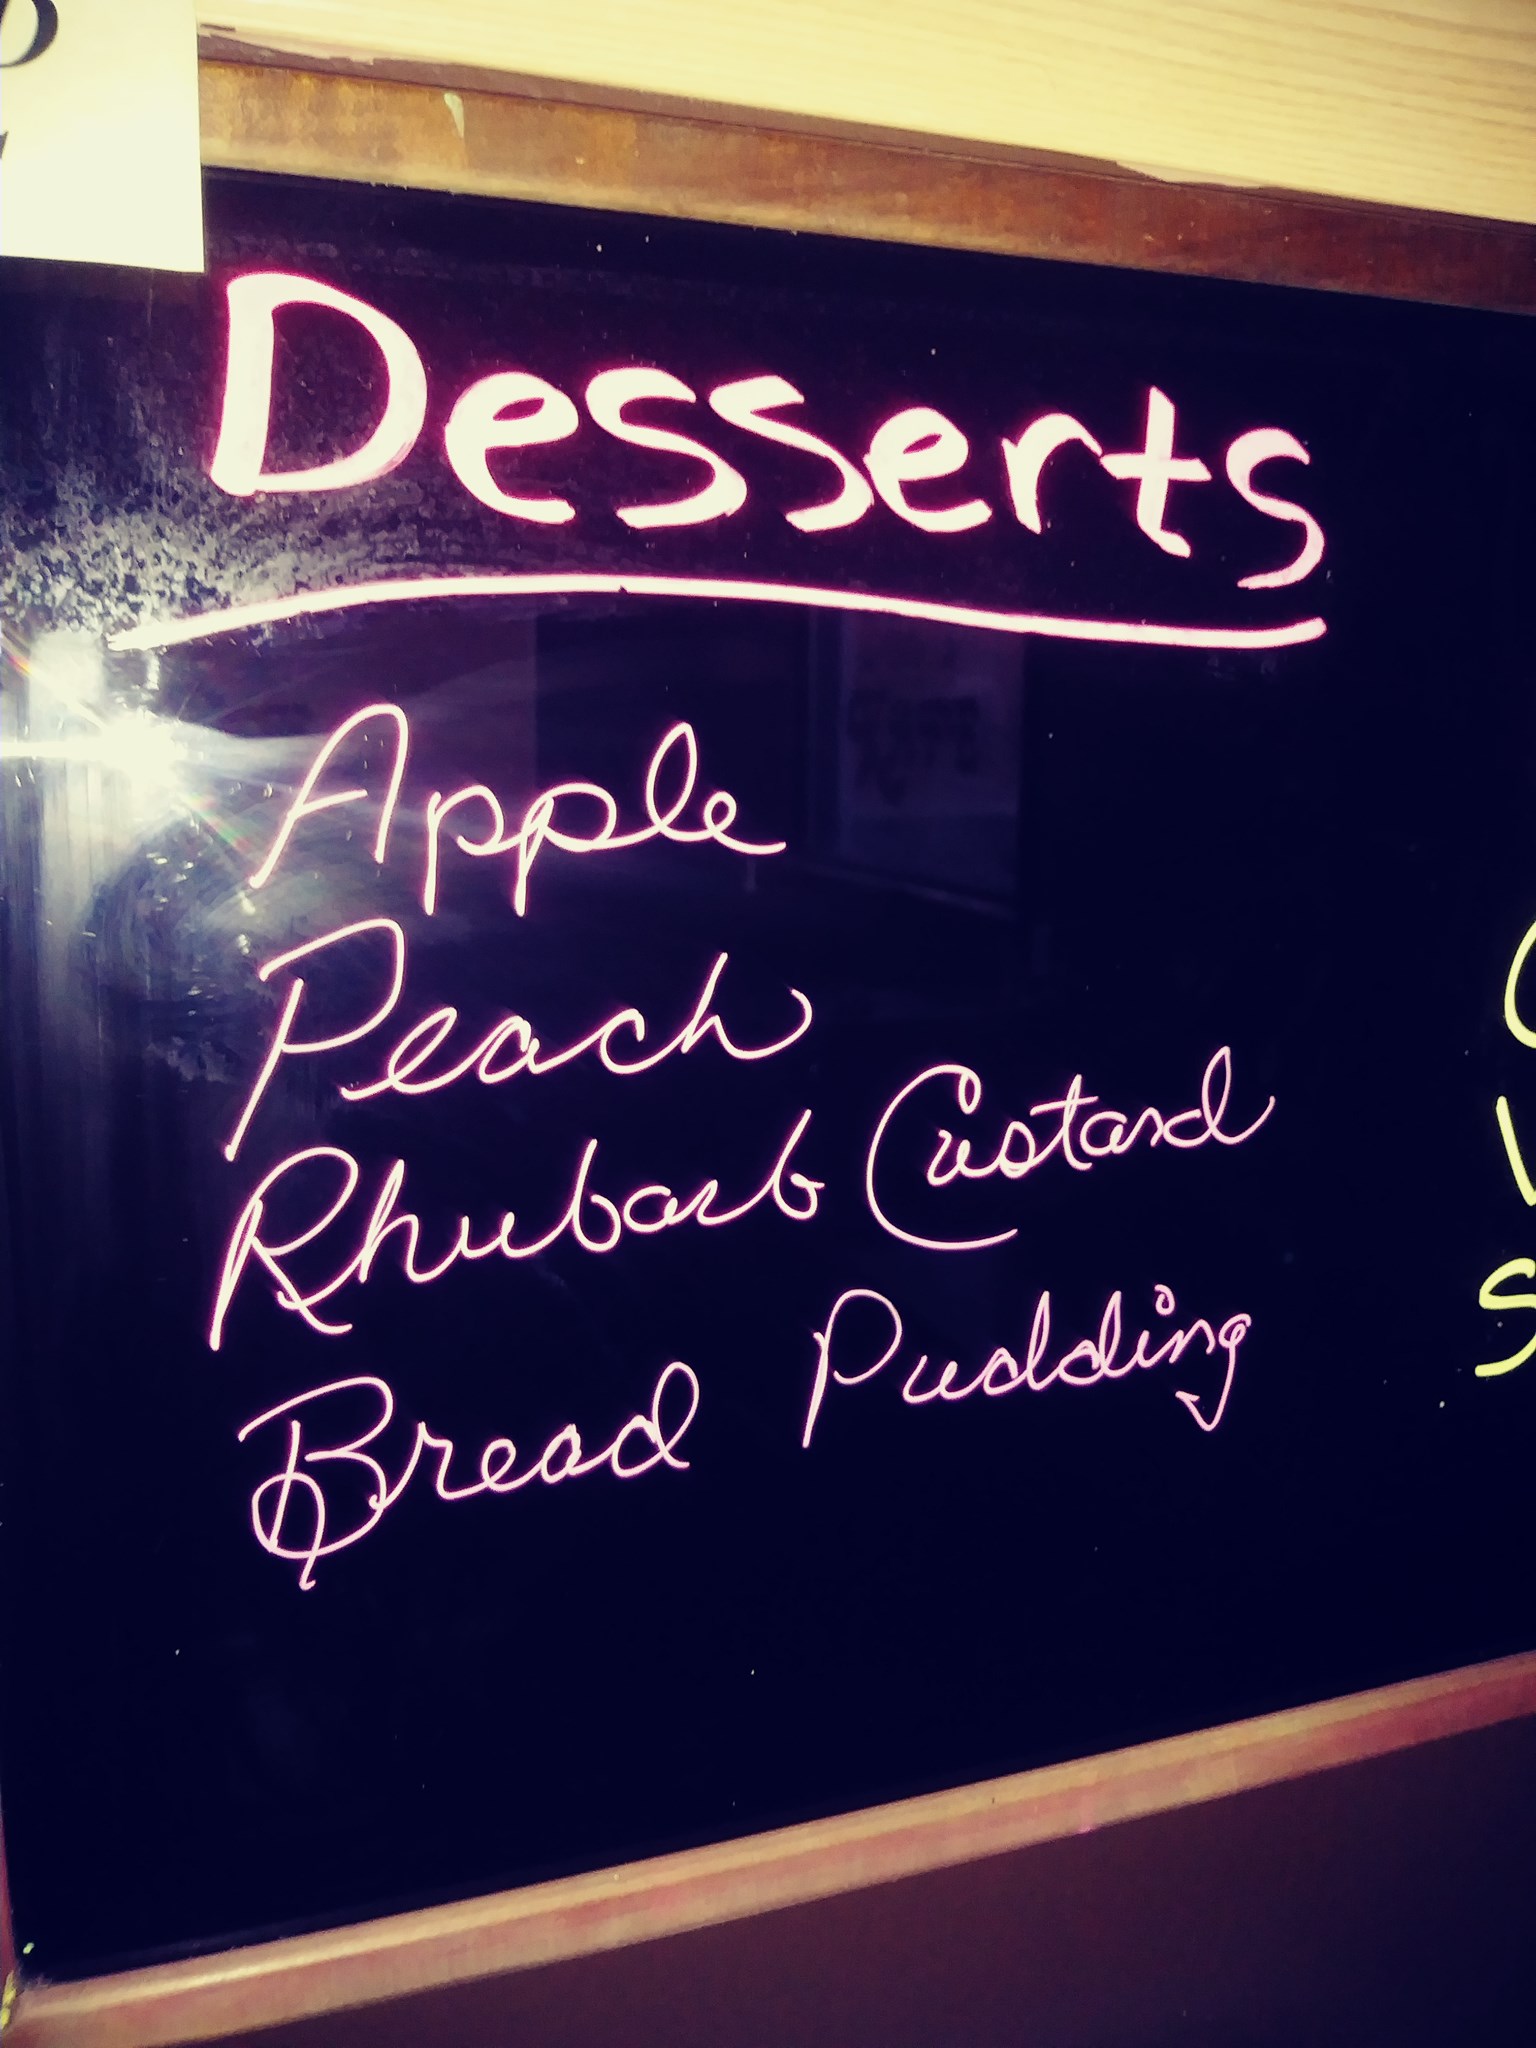 Desserts
Apple
Peach
Rhubarb Custard
Bread Pudding